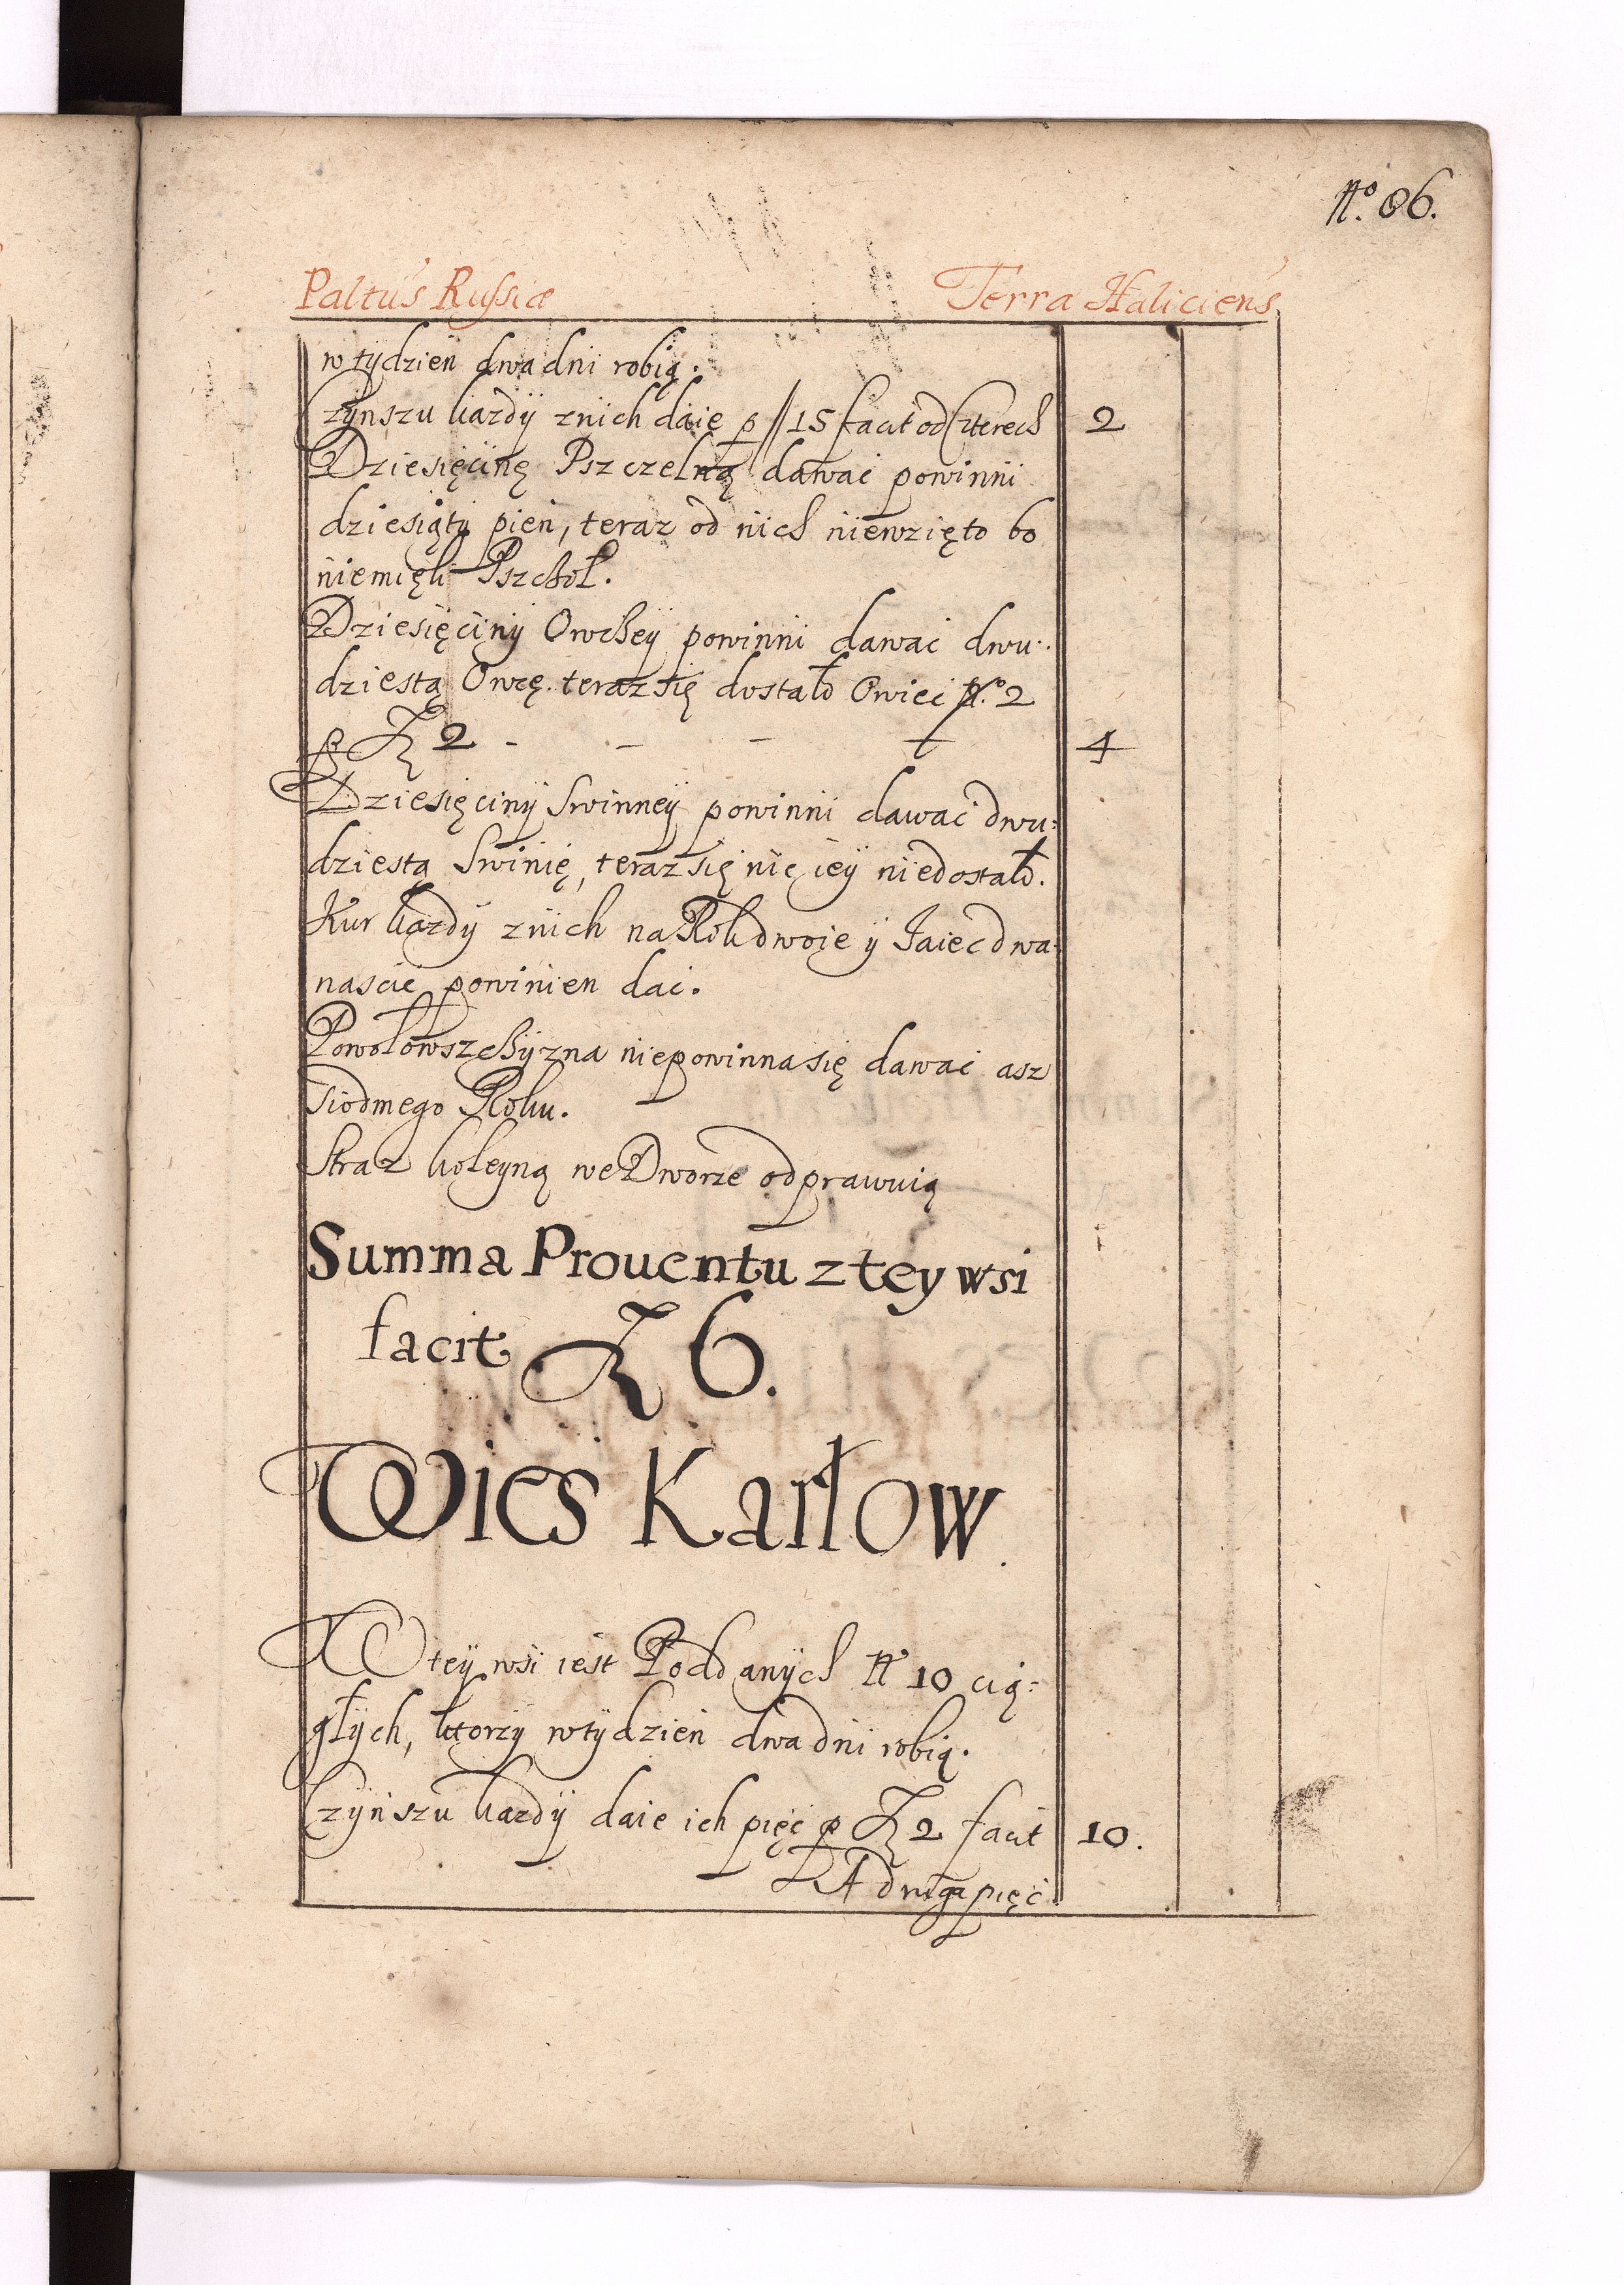 No. 86.
Paltus Russiæ Terra Haliciens
w tydzien dwa dni robią.
Czynszu kazdy znich daie p // 15 facit od Czterech 2
Dziesięcinę Pszczelną dawac powinni
dziesiąty pien, teraz od nich niewzięto bo
niemięli Pszchoł.
Dziesięciny Owchey powinni dawac dwu:
dziestą Owcę. teraz się dostało Owiec No. 2
p Zł 2 - - - - 4
Dziesięciny Swinney powinni dawac dwu:
dziestą Swinię, teraz się nic iey niedostało.
Kur kazdy znich na Rok dwoie y Iaiec dwa:
nascie powinien dac.
Powołowszchyzna niepowinna się dawac asz
Siodmego Roku.
Straz koleyną we Dworze odprawuią
Summa Prouentu z tey wsi
facit Zł 6.
Wies Karłow.
W tey wsi iest Poddanych No 10 cią:
głych, ktorzy w tydzien dwa dni robią.
Czynszu kazdy daie ich pięc p Zł 2 facit 10.
A druga pięc